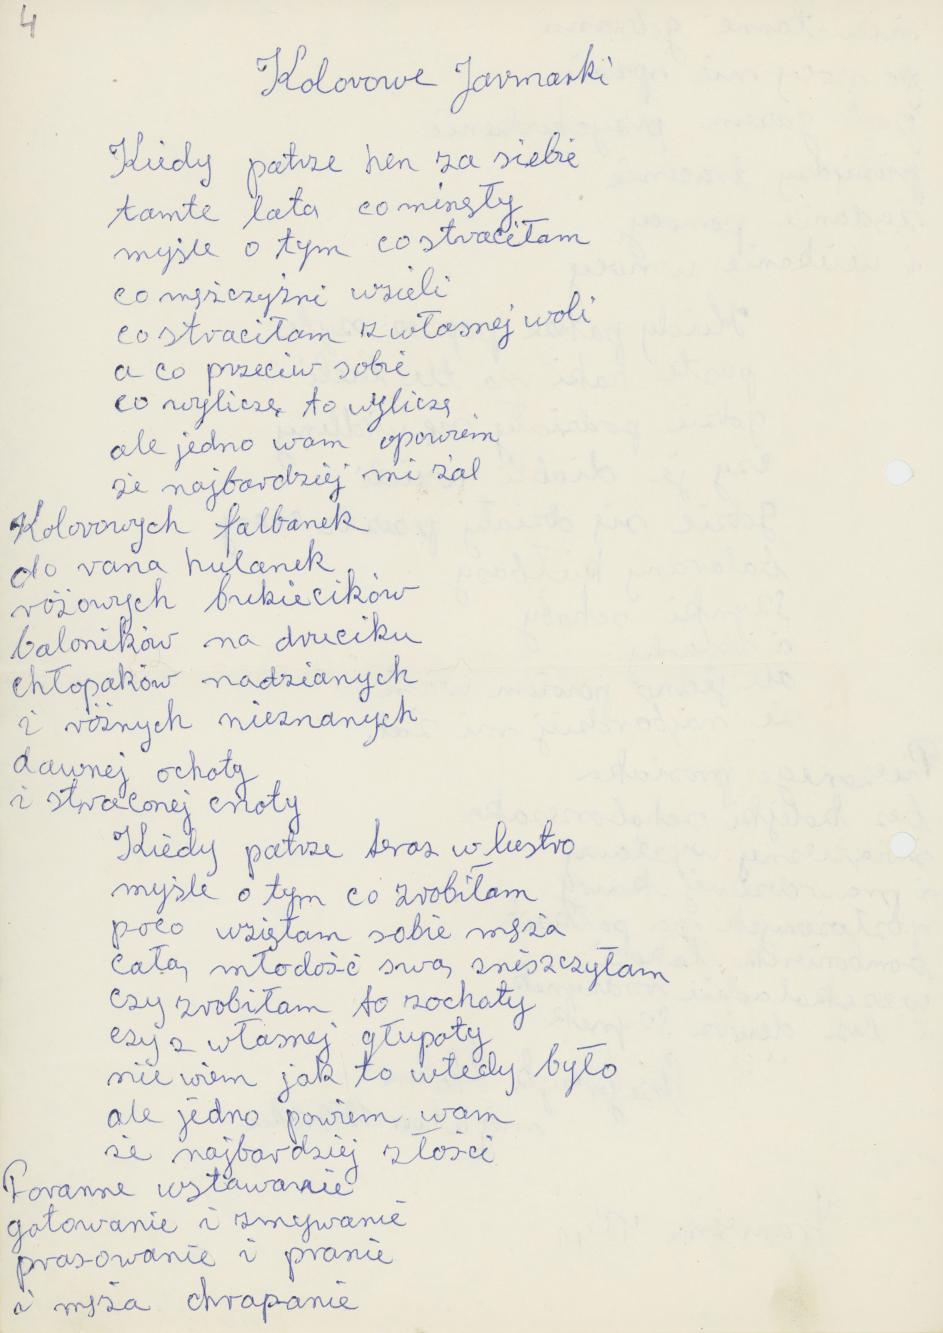 4
Kolorowe Jarmarki
Kiedy patrze hen za siebie
tamte lata co minęły
myśle o tym co straciłam
co mężczyźni wzieli
co straciłam z własnej woli
a co przeciw sobie
co wylicze to wyliczę
ale jedno wam opowiem
że najbardziej mi żal
Kolorowych falbanek
do rana hulanek
różowych bukiecików
baloników na druciku
chłopaków nadzianych
i różnych nieznanych
dawnej ochoty
i straconej cnoty
Kiedy patrze teraz w lustro
myśle o tym co zrobiłam
poco wzięłam sobie męża
całą młodość swą zniszczyłam
czy zrobiłam to zochoty
czy z własnej głupoty
nie wiem jak to wtedy było
ale jedno powiem wam
że najbardziej złości
Poranne wstawanie
gotowanie i zmywanie
prasowanie i pranie
i męża chrapanie